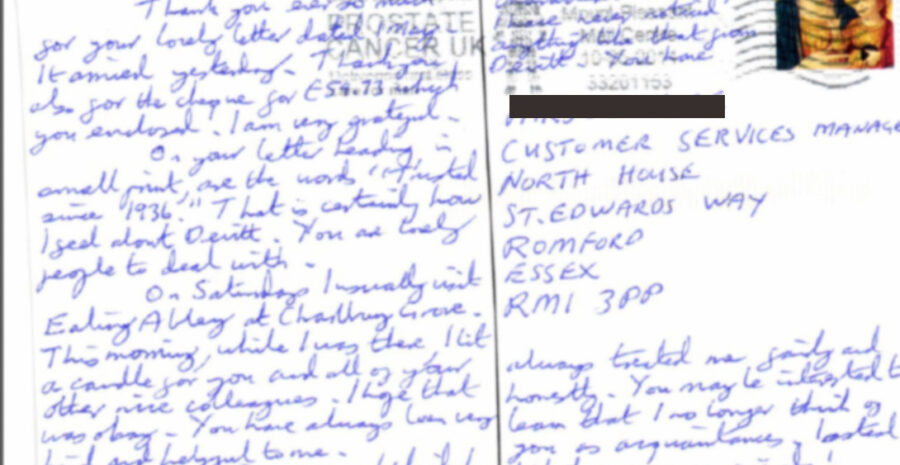 Thank you ever so much
for your lovely letter dated May
It arrived yesterday. Thank you
also for the cheque for £54.73 which
you enclosed. I am very grateful.
On your letter heading in
small print, are the words "Trusted
since 1936." That is certainly how
I feel about Devitt. You are lovely
people to deal with.
On Saturdays I usually visit
Ealing Abbey at Charlbury Grove.
This morning, while I was there I lit
a candle for you and all of your
other nice colleagues. I hope that
was okay. You have always been very
kind and helpful to me.
PROSTATE
CANCER UK
Mail Centre
33201153
anything like that from
Devitt. You have
CUSTOMER SERVICES MANAGE
NORTH HOUSE
ST. EDWARDS WAY
ROMFORD
ESSEX
RM1 3PP
always treated me fairly and
honestly. You may be interested t
learn that I no longer think of
you as acquaintances,